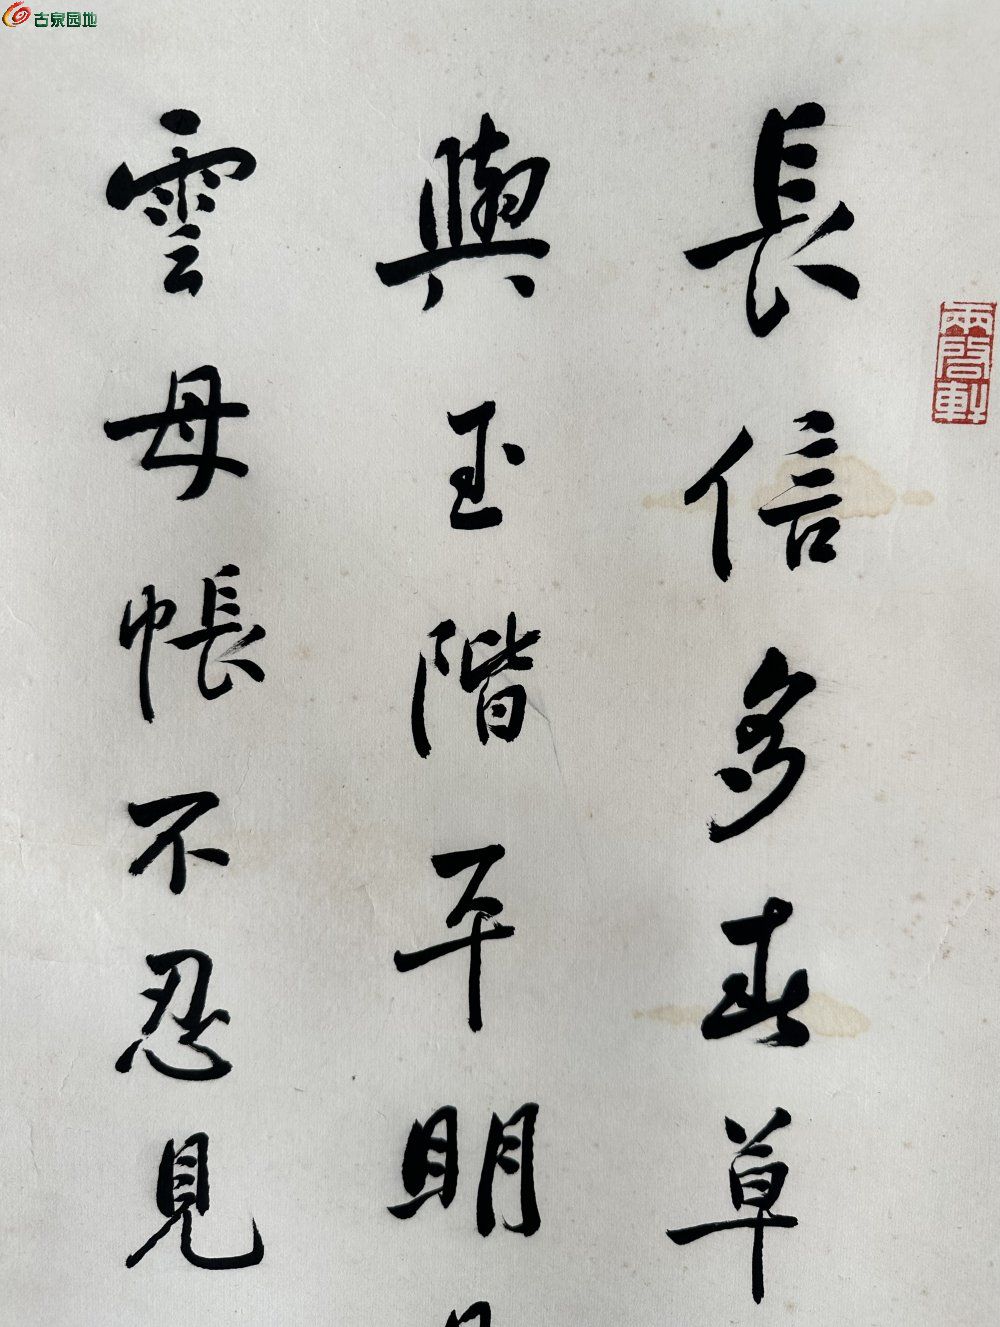 古泉园地
兩启軒
長信多春草
與玉階平明
雲母帳不忍見